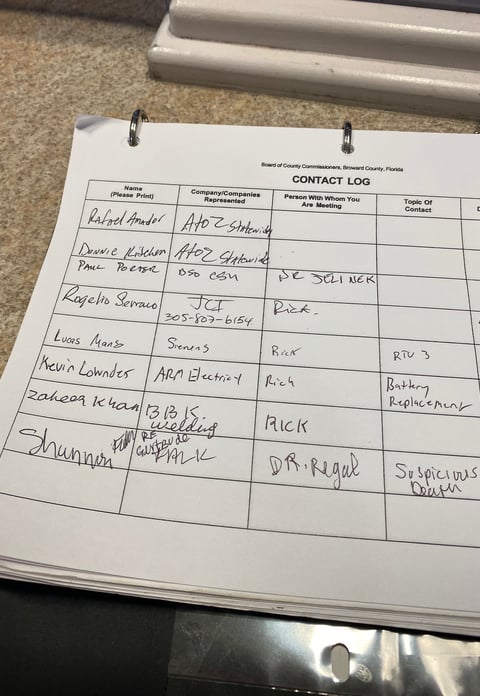 Board of County Commissioners, Broward County, Florida
CONTACT LOG
Name (Please Print) Company/Companies Represented Person With Whom You Are Meeting Topic Of Contact D
Rafael Amador AtoZ Statewide
Donnie Kitchen AtoZ Statewide
PAUL PORTER BSO CSU DR JELINEK
Rogelio Serrano JCI 305-807-6154 Rick.
Lucas Manso Siemens Rick RTU 3
Kevin Lowndes ARM Electricy Rich Battery Replacement
Zaheer Khan BBK welding RICK
Shannon DR. Regal Suspicious Death